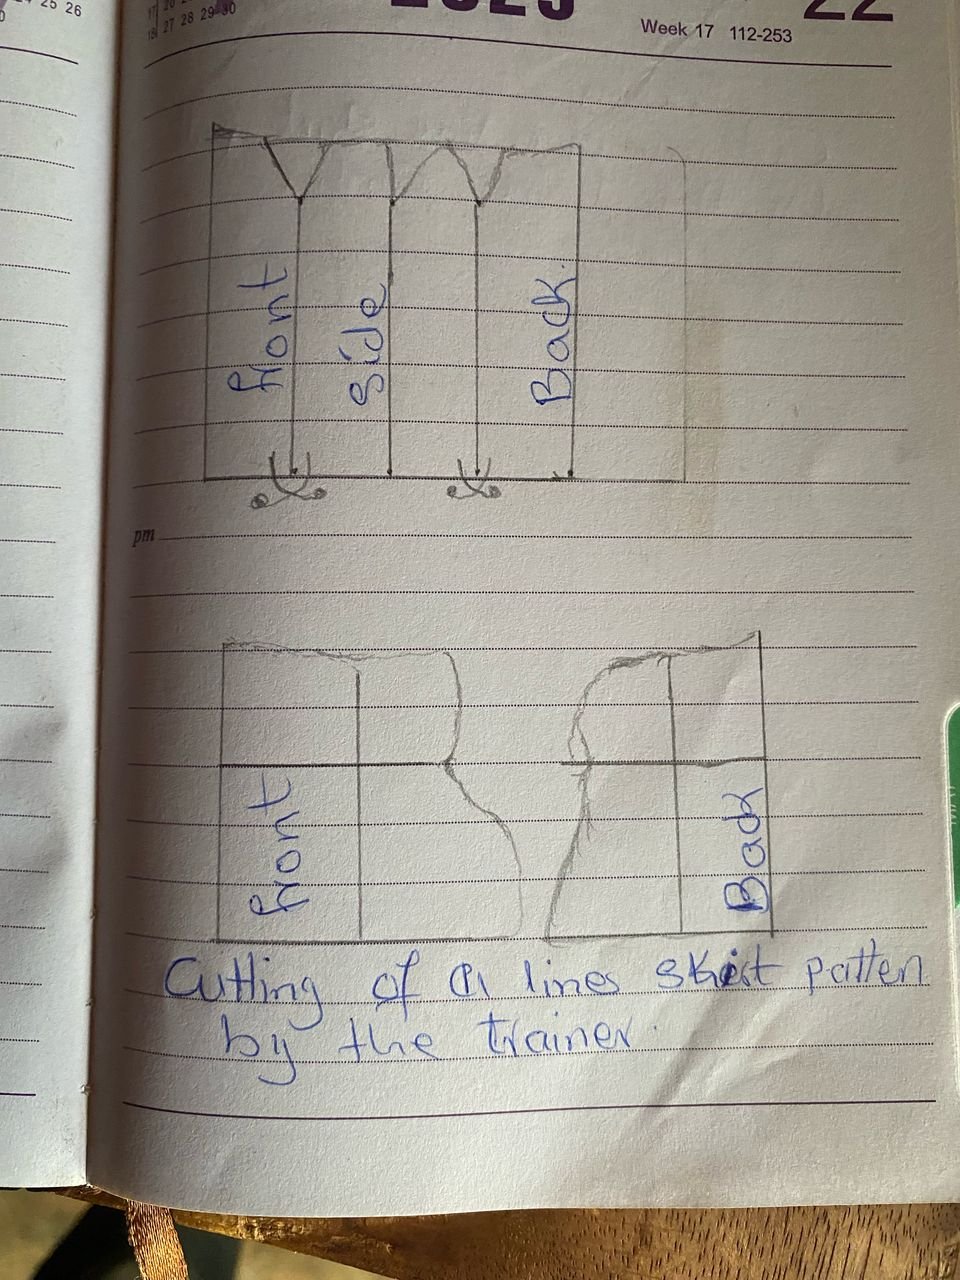 25 26
20
27 28 29 30
2023
22
Week 17 112-253
front
Side
Back
pm
front
Back
Cutting of A lines skirt patten
by the trainer.